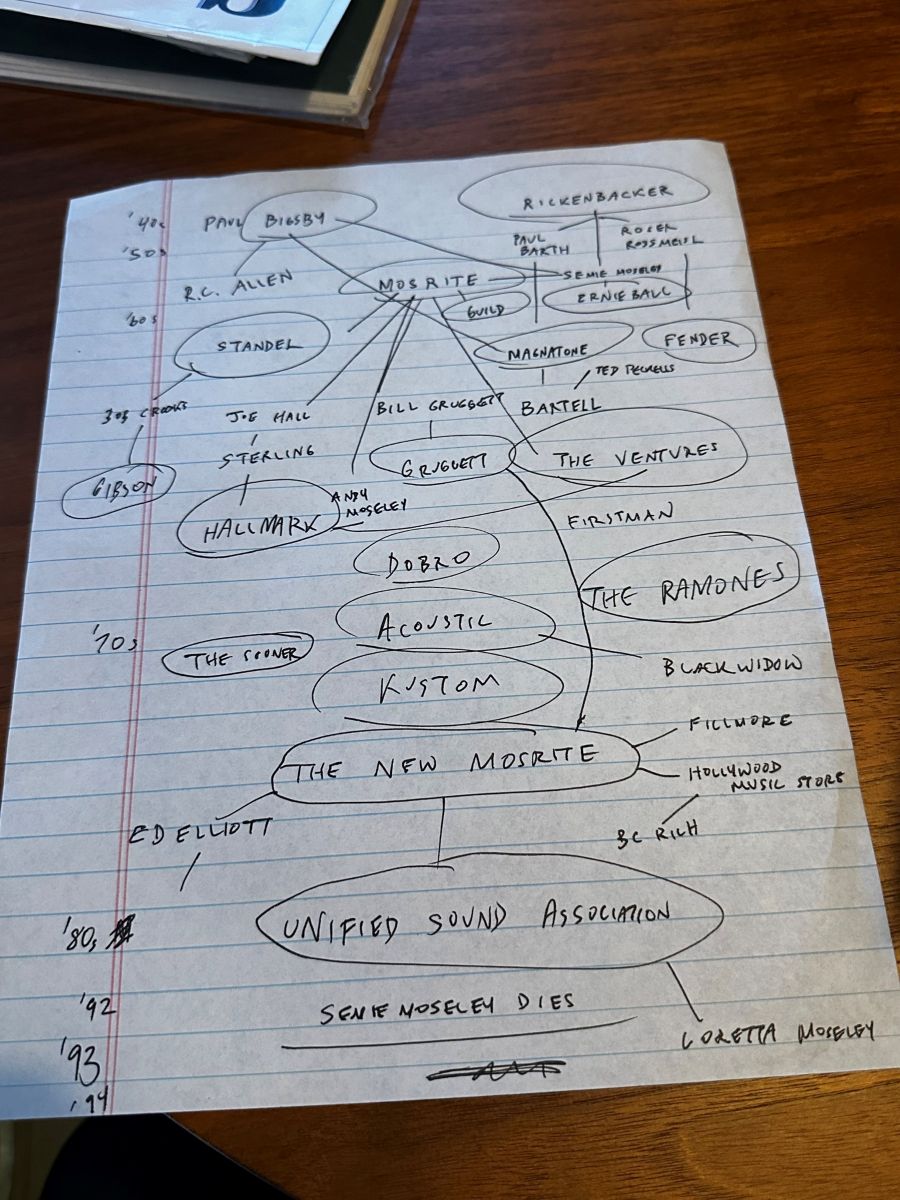 '40s
PAUL BIGSBY
RICKENBACKER
'50s
PAUL
BARTH
ROGER
ROSSMEISL
R.C. ALLEN
MOSRITE
SEMIE MOSELEY
ERNIE BALL
GUILD
'60s
STANDEL
MAGNATONE
FENDER
BOB CROOKS
JOE HALL
BILL GRUGGETT
BARTELL
TED PECKELS
STERLING
GRUGGETT
THE VENTURES
GIBSON
HALLMARK
ANDY
MOSELEY
FIRSTMAN
DOBRO
THE RAMONES
'70s
ACOUSTIC
THE SOONER
BLACK WIDOW
KUSTOM
FILLMORE
THE NEW MOSRITE
HOLLYWOOD
MUSIC STORE
ED ELLIOTT
BC RICH
'80s
UNIFIED SOUND ASSOCIATION
'92
SEMIE MOSELEY DIES
LORETTA MOSELEY
'93
'94